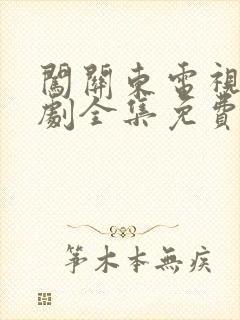 闖關東電視
劇全集免費
筝木本無疾